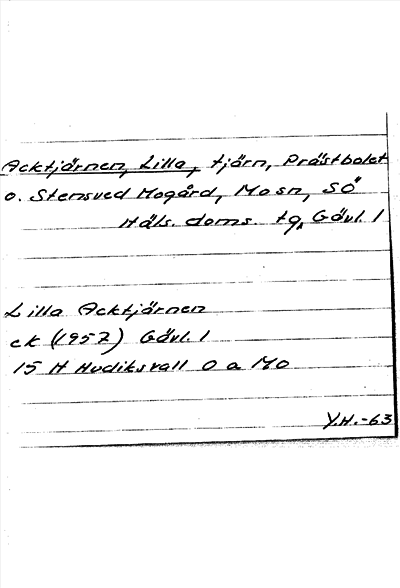 Acktjärnen, Lilla, tjärn, Prästbolet
o. Stensved Mogård, Mo sn, SÖ
Häls. doms. tg, Gävl. l
Lilla Acktjärnen
ek (1957) Gävl. l
15 H Hudiksvall O a Mo
Y.H.-63